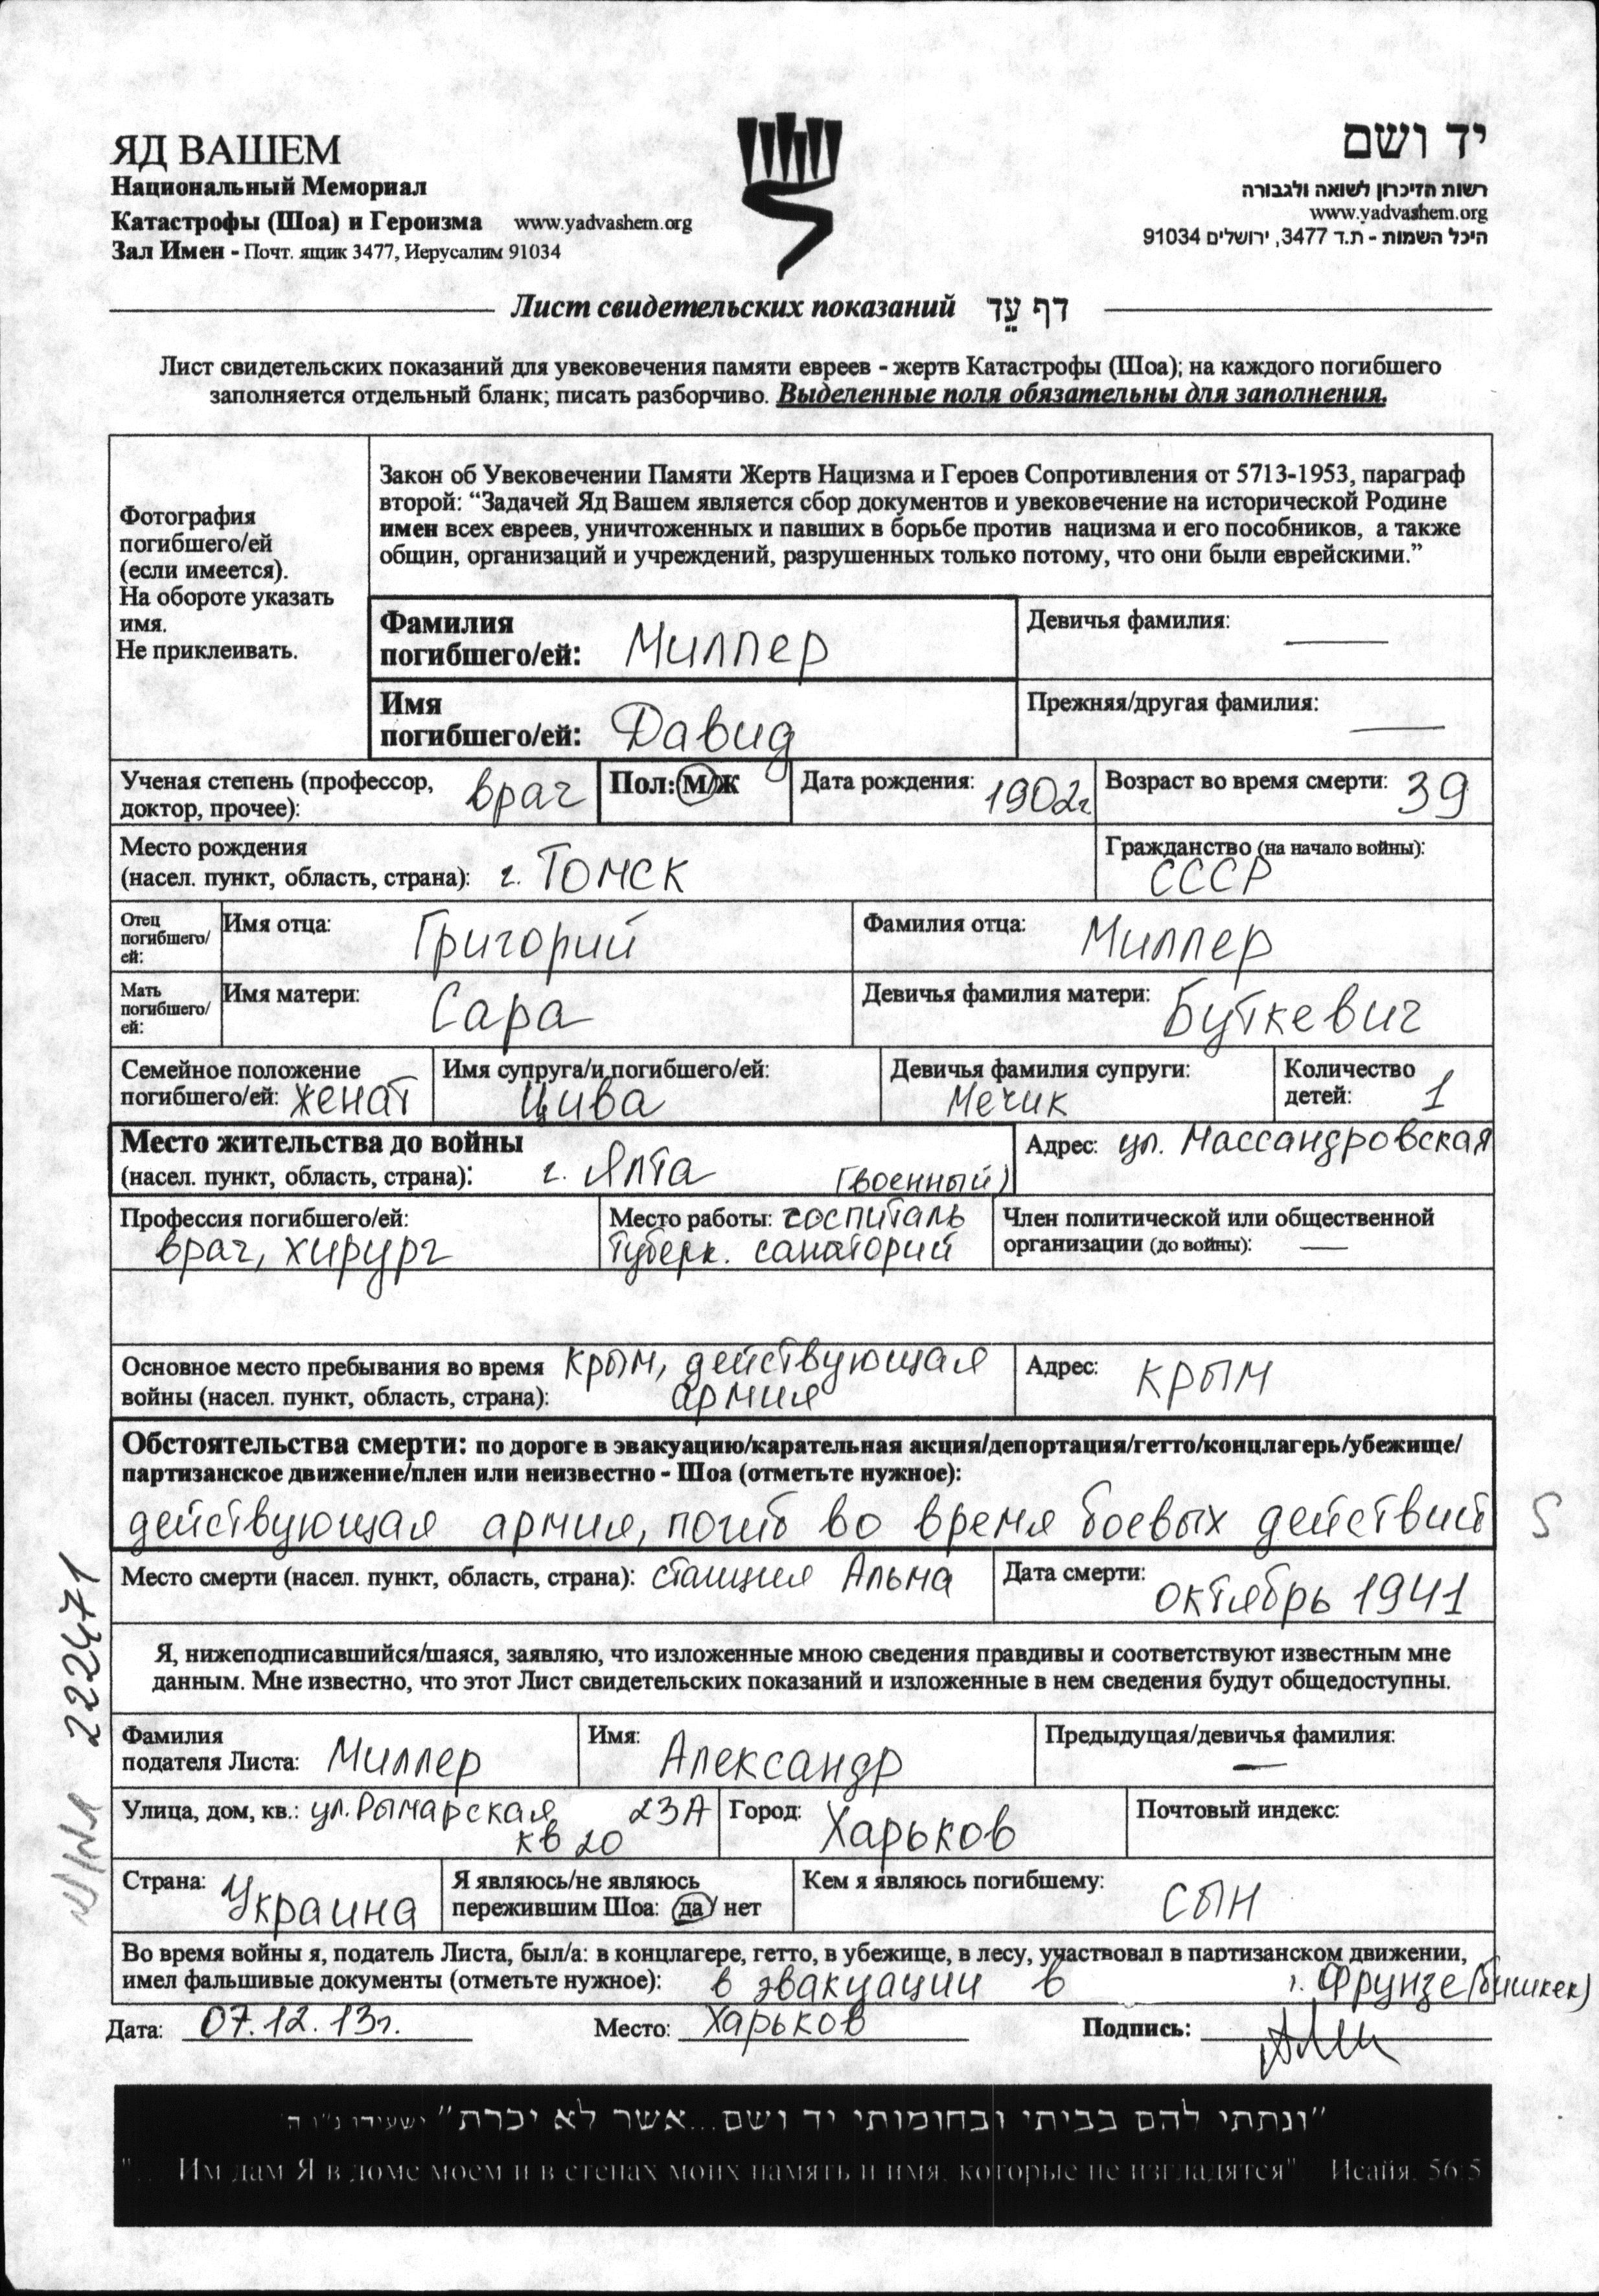 ЯД ВАШЕМ
Национальный Мемориал
Катастрофы (Шоа) и Героизма www.yadvashem.org
Зал Имен - Почт. ящик 3477, Иерусалим 91034
יד ושם
רשות הזיכרון לשואה ולגבורה
www.yadvashem.org
היכל השמות - ת.ד 3477, ירושלים 91034
Лист свидетельских показаний דף עֵד
Лист свидетельских показаний для увековечения памяти евреев - жертв Катастрофы (Шоа); на каждого погибшего
заполняется отдельный бланк; писать разборчиво. Выделенные поля обязательны для заполнения.
Фотография
погибшего/ей
(если имеется).
На обороте указать
имя.
Не приклеивать.
Закон об Увековечении Памяти Жертв Нацизма и Героев Сопротивления от 5713-1953, параграф
второй: “Задачей Яд Вашем является сбор документов и увековечение на исторической Родине
имен всех евреев, уничтоженных и павших в борьбе против нацизма и его пособников, а также
общин, организаций и учреждений, разрушенных только потому, что они были еврейскими.”
Фамилия
погибшего/ей: Миллер
Девичья фамилия: —
Имя
погибшего/ей: Давид
Прежняя/другая фамилия: —
Ученая степень (профессор,
доктор, прочее): врач
Пол: М/Ж
Дата рождения: 1902г
Возраст во время смерти: 39
Место рождения
(насел. пункт, область, страна): г. Томск
Гражданство (на начало войны):
СССР
Отец
погибшего/
ей:
Имя отца: Григорий
Фамилия отца: Миллер
Мать
погибшего/
ей:
Имя матери: Сара
Девичья фамилия матери: Буткевич
Семейное положение
погибшего/ей: женат
Имя супруга/и погибшего/ей:
Цива
Девичья фамилия супруги:
Мечик
Количество
детей: 1
Место жительства до войны
(насел. пункт, область, страна): г. Ялта (военный)
Адрес: ул. Массандровская
Профессия погибшего/ей:
врач, хирург
Место работы: госпиталь
туберк. санаторий
Член политической или общественной
организации (до войны): —
Основное место пребывания во время Крым, действующая
войны (насел. пункт, область, страна): армия
Адрес: Крым
Обстоятельства смерти: по дороге в эвакуацию/карательная акция/депортация/гетто/концлагерь/убежище/
партизанское движение/плен или неизвестно - Шоа (отметьте нужное):
действующая армия, погиб во время боевых действий
S
Место смерти (насел. пункт, область, страна): станция Альма
Дата смерти:
октябрь 1941
Я, нижеподписавшийся/шаяся, заявляю, что изложенные мною сведения правдивы и соответствуют известным мне
данным. Мне известно, что этот Лист свидетельских показаний и изложенные в нем сведения будут общедоступны.
Фамилия
подателя Листа: Миллер
Имя: Александр
Предыдущая/девичья фамилия:
—
Улица, дом, кв.: ул. Рымарская 23А
кв 20
Город: Харьков
Почтовый индекс:
Страна: Украина
Я являюсь/не являюсь
пережившим Шоа: да/ нет
Кем я являюсь погибшему:
сын
Во время войны я, податель Листа, был/а: в концлагере, гетто, в убежище, в лесу, участвовал в партизанском движении,
имел фальшивые документы (отметьте нужное): в эвакуации в г. Фрунзе (Бишкек)
Дата: 07.12.13г.
Место: Харьков
Подпись:
222471
"ונתתי להם בביתי ובחומותי יד ושם...אשר לא יכרת" ישעיהו נ"ו ה'
"... Им дам Я в доме моем и в стенах моих память и имя, которые не изгладятся" Исайя, 56:5